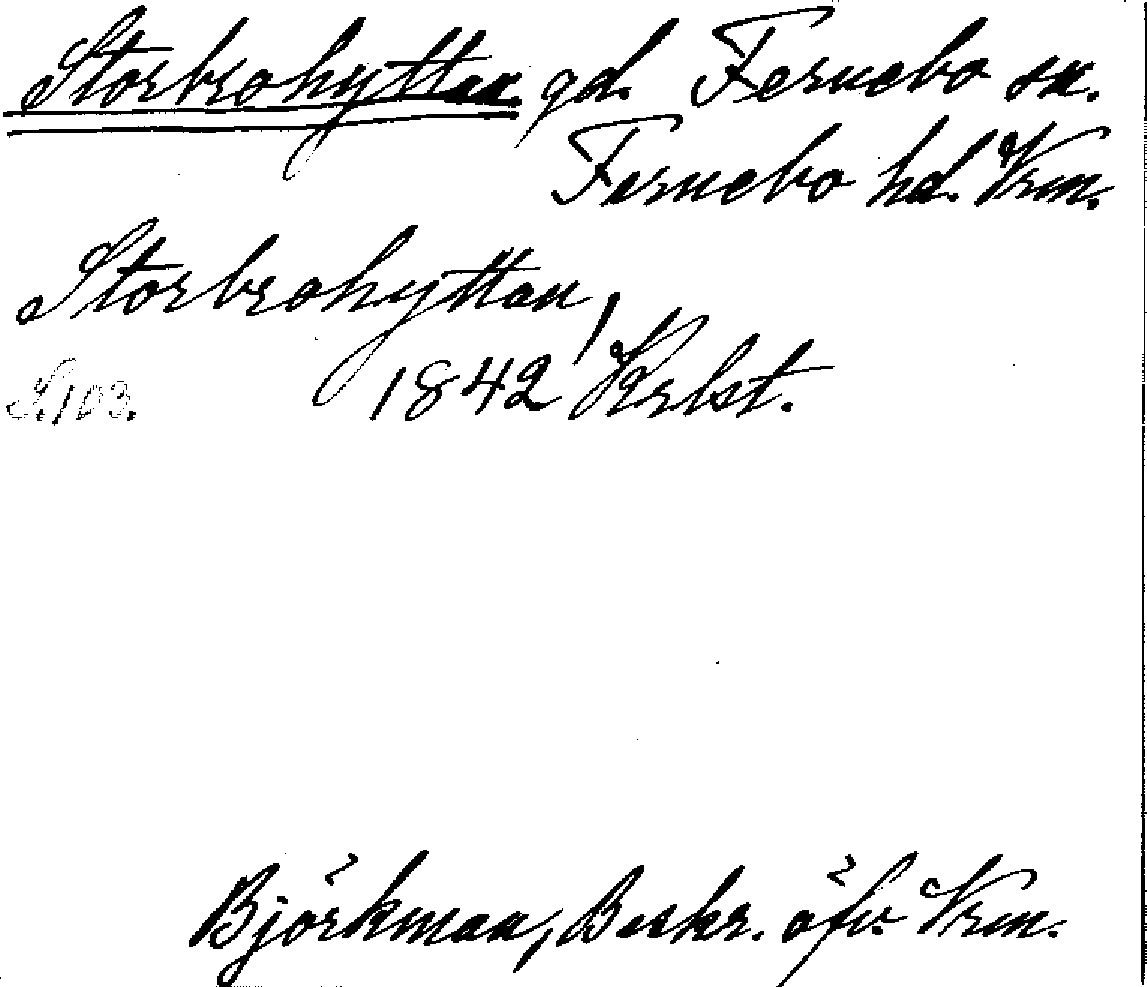 Storbrohyttan gd. Fernebo sn.
Fernebo hd. Vrm.
Storbrohyttan,
S. 103. 1842 Krlst.
Björkman, Beskr. öfv. Vrm.